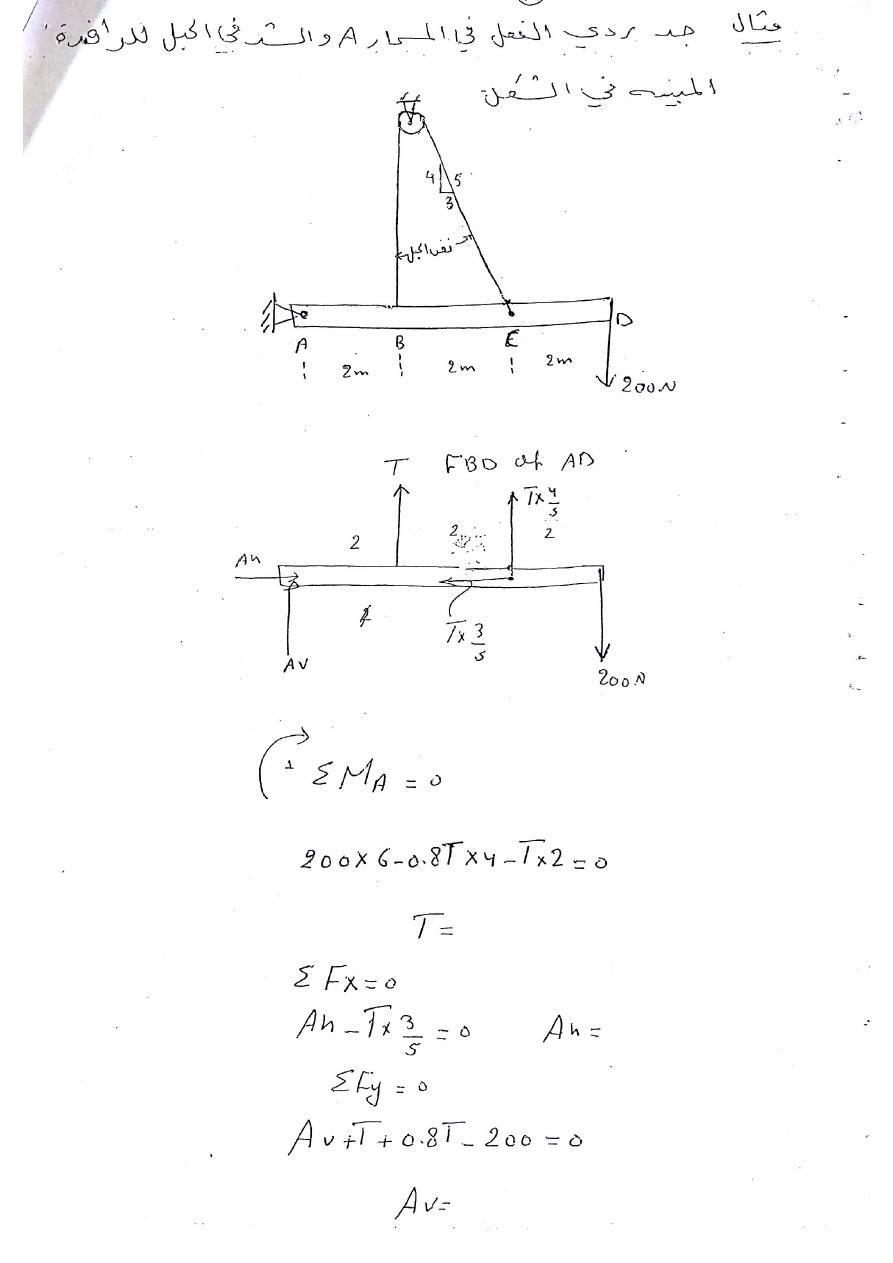 مثال جد ردي الفعل في المسمار A والشد في الحبل للرافدة
المبينه في الشكل
4
5
3
نفس الحبل
A B E D
2m 2m 2m
200N
T FBD of AD
T×4/5
2 2 2
Ah
T×3/5
Av
200N
+ ΣMA = 0
200×6-0.8T×4-T×2=0
T=
ΣFx=0
Ah-T×3/5=0 Ah=
ΣFy=0
Av+T+0.8T-200=0
Av=